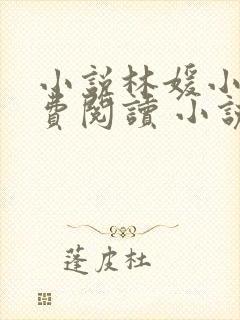 小說林媛小
費閱讀 小說
蓬皮杜